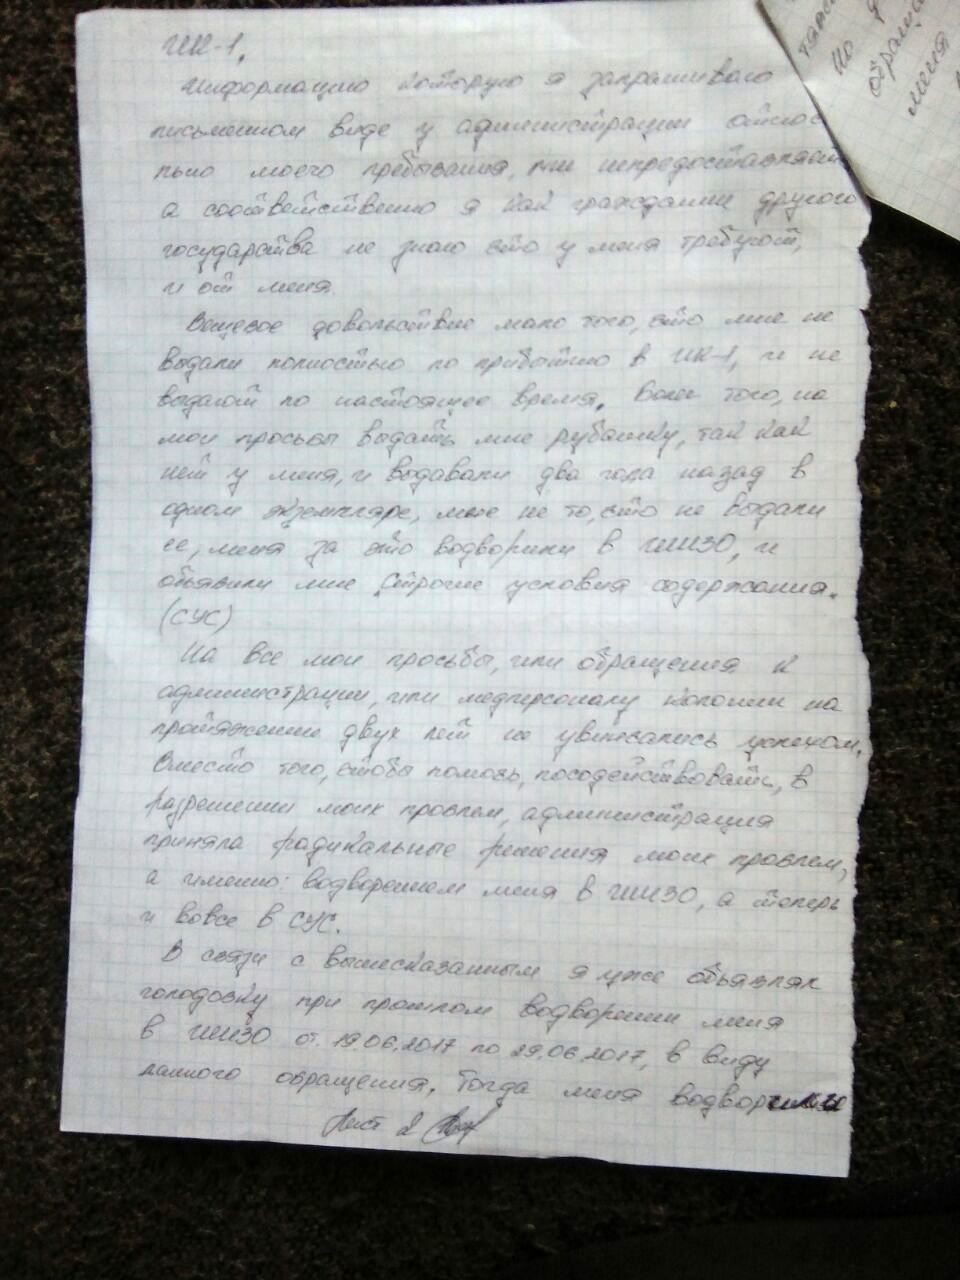 ИК-1.
Информацию которую я запрашиваю
письменном виде у администрации относ
льно моего пребывания, мне непредоставляет
а соответственно я как гражданин другого
государства не знаю что у меня требуют,
и от меня.
Вещевое довольствие мало того, что мне не
выдали полностью по прибытию в ИК-1, и не
выдают по настоящее время. Более того, на
мои просьбы выдать мне рубашку, так как
нет у меня, и выдавали два года назад в
одном экземпляре, мне не то, что не выдали
ее, меня за это водворили в ШИЗО, и
объявили мне строгие условия содержания.
(СУС)
На все мои просьбы, или обращения к
администрации, или медперсоналу колонии на
протяжение двух лет не увенчались успехом.
Вместо того, чтобы помочь, посодействовать, в
разрешении моих проблем, администрация
приняла радикальные решения моих проблем,
а именно: водворением меня в ШИЗО, а теперь
и вовсе в СУС.
В связи с вышесказанным я уже объявлял
голодовку при прошлом водворении меня
в ШИЗО от. 19.06.2017 по 29.06.2017, в виду
данного обращения. Тогда меня водворили
Лист 2
так
но
обраща
меня